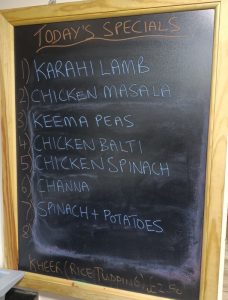 TODAY'S SPECIALS
1) KARAHI LAMB
2) CHICKEN MASALA
3) KEEMA PEAS
4) CHICKEN BALTI
5) CHICKEN SPINACH
6) CHANNA
7) SPINACH + POTATOES
8
KHEER (RICE PUDDING)